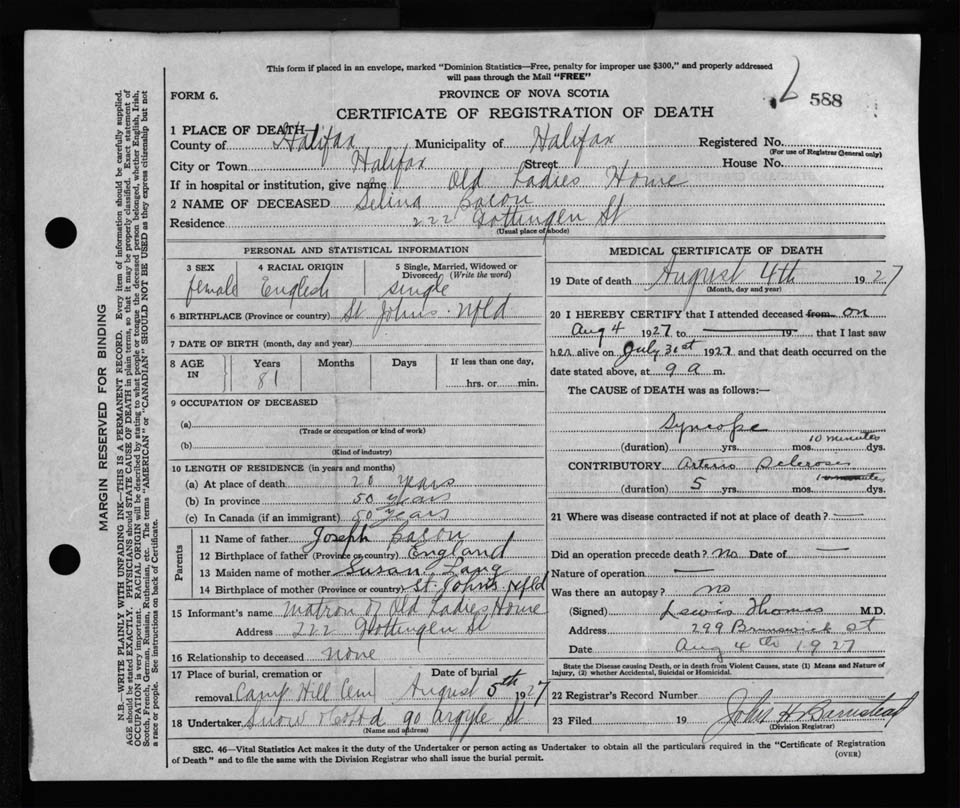 This form if placed in an envelope, marked "Dominion Statistics—Free, penalty for improper use $300," and properly addressed
will pass through the Mail "FREE"
FORM 6.
PROVINCE OF NOVA SCOTIA
588
CERTIFICATE OF REGISTRATION OF DEATH
1 PLACE OF DEATH
County of Halifax Municipality of Halifax Registered No.
(For use of Registrar General only)
City or Town Halifax Street House No.
If in hospital or institution, give name Old Ladies Home
2 NAME OF DECEASED Selina Bacon
Residence 222 Gottingen St
(Usual place of abode)
PERSONAL AND STATISTICAL INFORMATION
3 SEX 4 RACIAL ORIGIN 5 Single, Married, Widowed or
Divorced (Write the word)
female English single
6 BIRTHPLACE (Province or country) St Johns. Nfld
7 DATE OF BIRTH (month, day and year)
8 AGE Years Months Days If less than one day,
IN 81 hrs. or min.
9 OCCUPATION OF DECEASED
(a)
(Trade or occupation or kind of work)
(b)
(Kind of industry)
10 LENGTH OF RESIDENCE (in years and months)
(a) At place of death 20 years
(b) In province 50 years
(c) In Canada (if an immigrant) 50 years
Parents
11 Name of father Joseph Bacon
12 Birthplace of father (Province or country) England
13 Maiden name of mother Susan Lang
14 Birthplace of mother (Province or country) St. Johns Nfld
15 Informant's name Matron of Old Ladies Home
Address 222 Gottingen St
16 Relationship to deceased none
17 Place of burial, cremation or Date of burial
removal Camp Hill Cem August 5th 1927
18 Undertaker Snow & Co Ltd 90 Argyle St
(Name and address)
MEDICAL CERTIFICATE OF DEATH
19 Date of death August 4th 1927
(Month, day and year)
20 I HEREBY CERTIFY that I attended deceased from on
Aug 4 1927 to — 19 - that I last saw
her alive on July 31st 1927 and that death occurred on the
date stated above, at 9 a m.
The CAUSE OF DEATH was as follows:—
Syncope
10 minutes
(duration) yrs. mos. dys.
CONTRIBUTORY Arterio Sclerosis
(duration) 5 yrs. mos. dys.
21 Where was disease contracted if not at place of death? —
Did an operation precede death? No Date of —
Nature of operation —
Was there an autopsy? no
(Signed) Lewis Thomas M.D.
Address 299 Brunswick St
Date Aug 4th 1927
State the Disease causing Death, or in death from Violent Causes, state (1) Means and Nature of
Injury, (2) whether Accidental, Suicidal or Homicidal.
22 Registrar's Record Number
23 Filed 19 John H Barnstead
(Division Registrar)
SEC. 46—Vital Statistics Act makes it the duty of the Undertaker or person acting as Undertaker to obtain all the particulars required in the "Certificate of Registration
of Death" and to file the same with the Division Registrar who shall issue the burial permit.
(OVER)
MARGIN RESERVED FOR BINDING
N.B.—WRITE PLAINLY WITH UNFADING INK—THIS IS A PERMANENT RECORD. Every item of information should be carefully supplied.
AGE should be stated EXACTLY. PHYSICIANS should STATE CAUSE OF DEATH in plain terms, so that it may be properly classified. Exact statement of
OCCUPATION is very important. RACIAL ORIGIN will be described by stating to what people or tongue the deceased person belonged, whether English, Irish,
Scotch, French, German, Russian, Ruthenian, etc. The terms "AMERICAN" or "CANADIAN" SHOULD NOT BE USED as they express citizenship but not
a race or people. See instructions on back of Certificate.